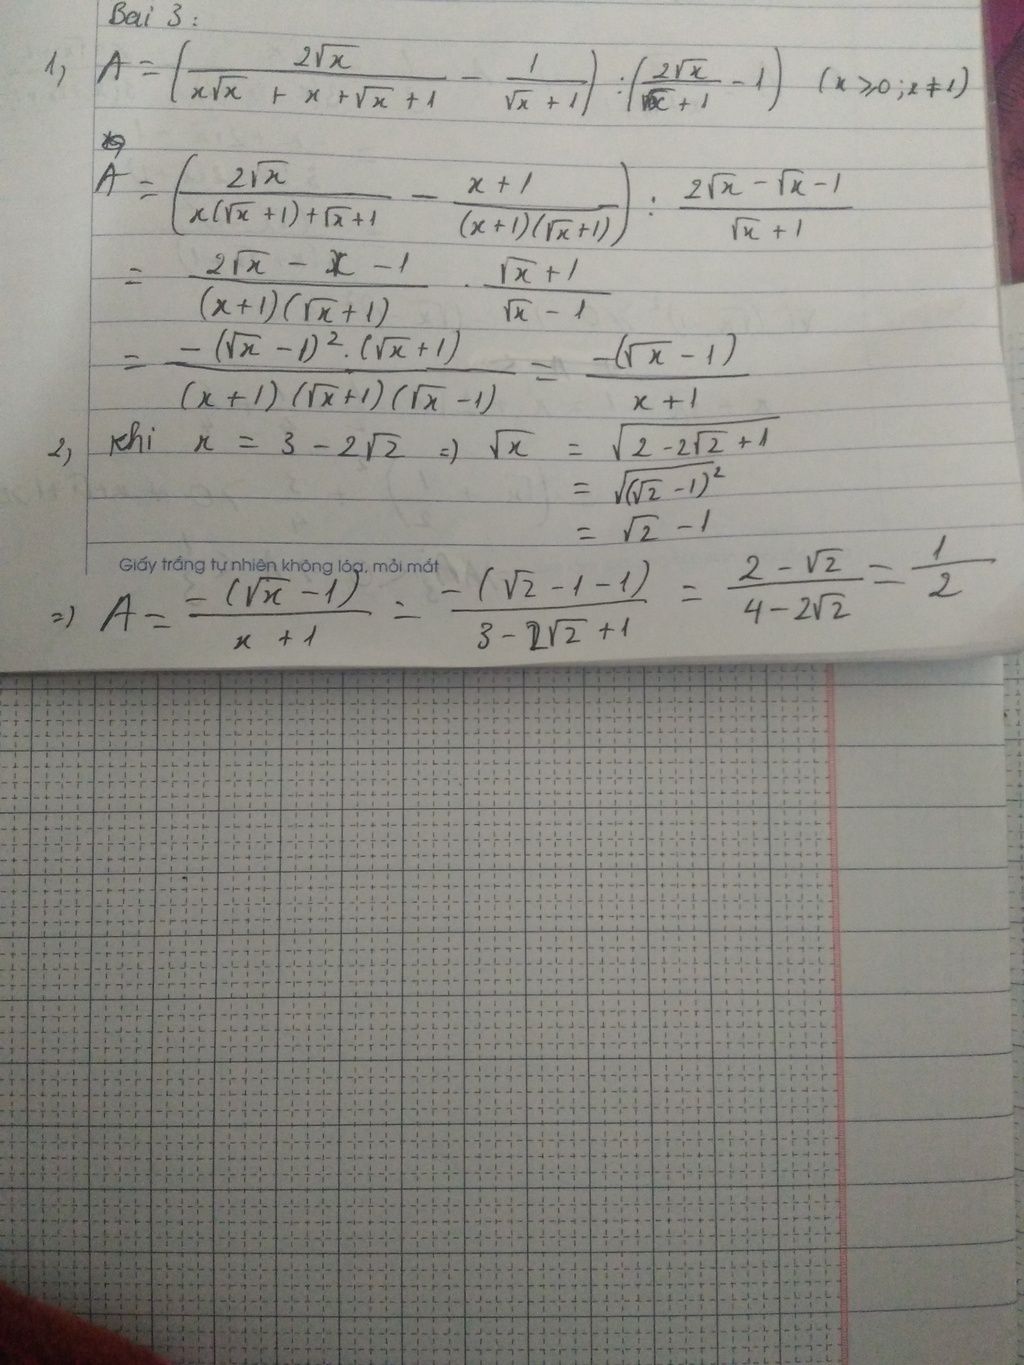 Bài 3:
1, A = (2√x / (x√x + x + √x + 1) - 1 / (√x + 1)) : (2√x / (√x + 1) - 1) (x ⩾ 0; x ≠ 1)
A = (2√x / (x(√x + 1) + √x + 1) - (x + 1) / ((x + 1)(√x + 1))) : (2√x - √x - 1) / (√x + 1)
= (2√x - x - 1) / ((x + 1)(√x + 1)) . (√x + 1) / (√x - 1)
= (-(√x - 1)² . (√x + 1)) / ((x + 1)(√x + 1)(√x - 1)) = -(√x - 1) / (x + 1)
2, Khi x = 3 - 2√2 => √x = √(2 - 2√2 + 1)
= √((√2 - 1)²)
= √2 - 1
Giấy trắng tự nhiên không lóa, mỏi mắt
=> A = -(√x - 1) / (x + 1) = -(√2 - 1 - 1) / (3 - 2√2 + 1) = (2 - √2) / (4 - 2√2) = 1 / 2